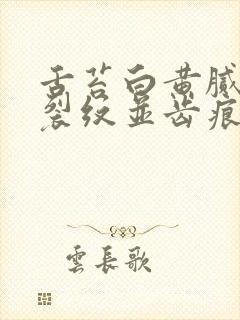 舌苔白黄腻
裂纹并齿痕
雲長歌